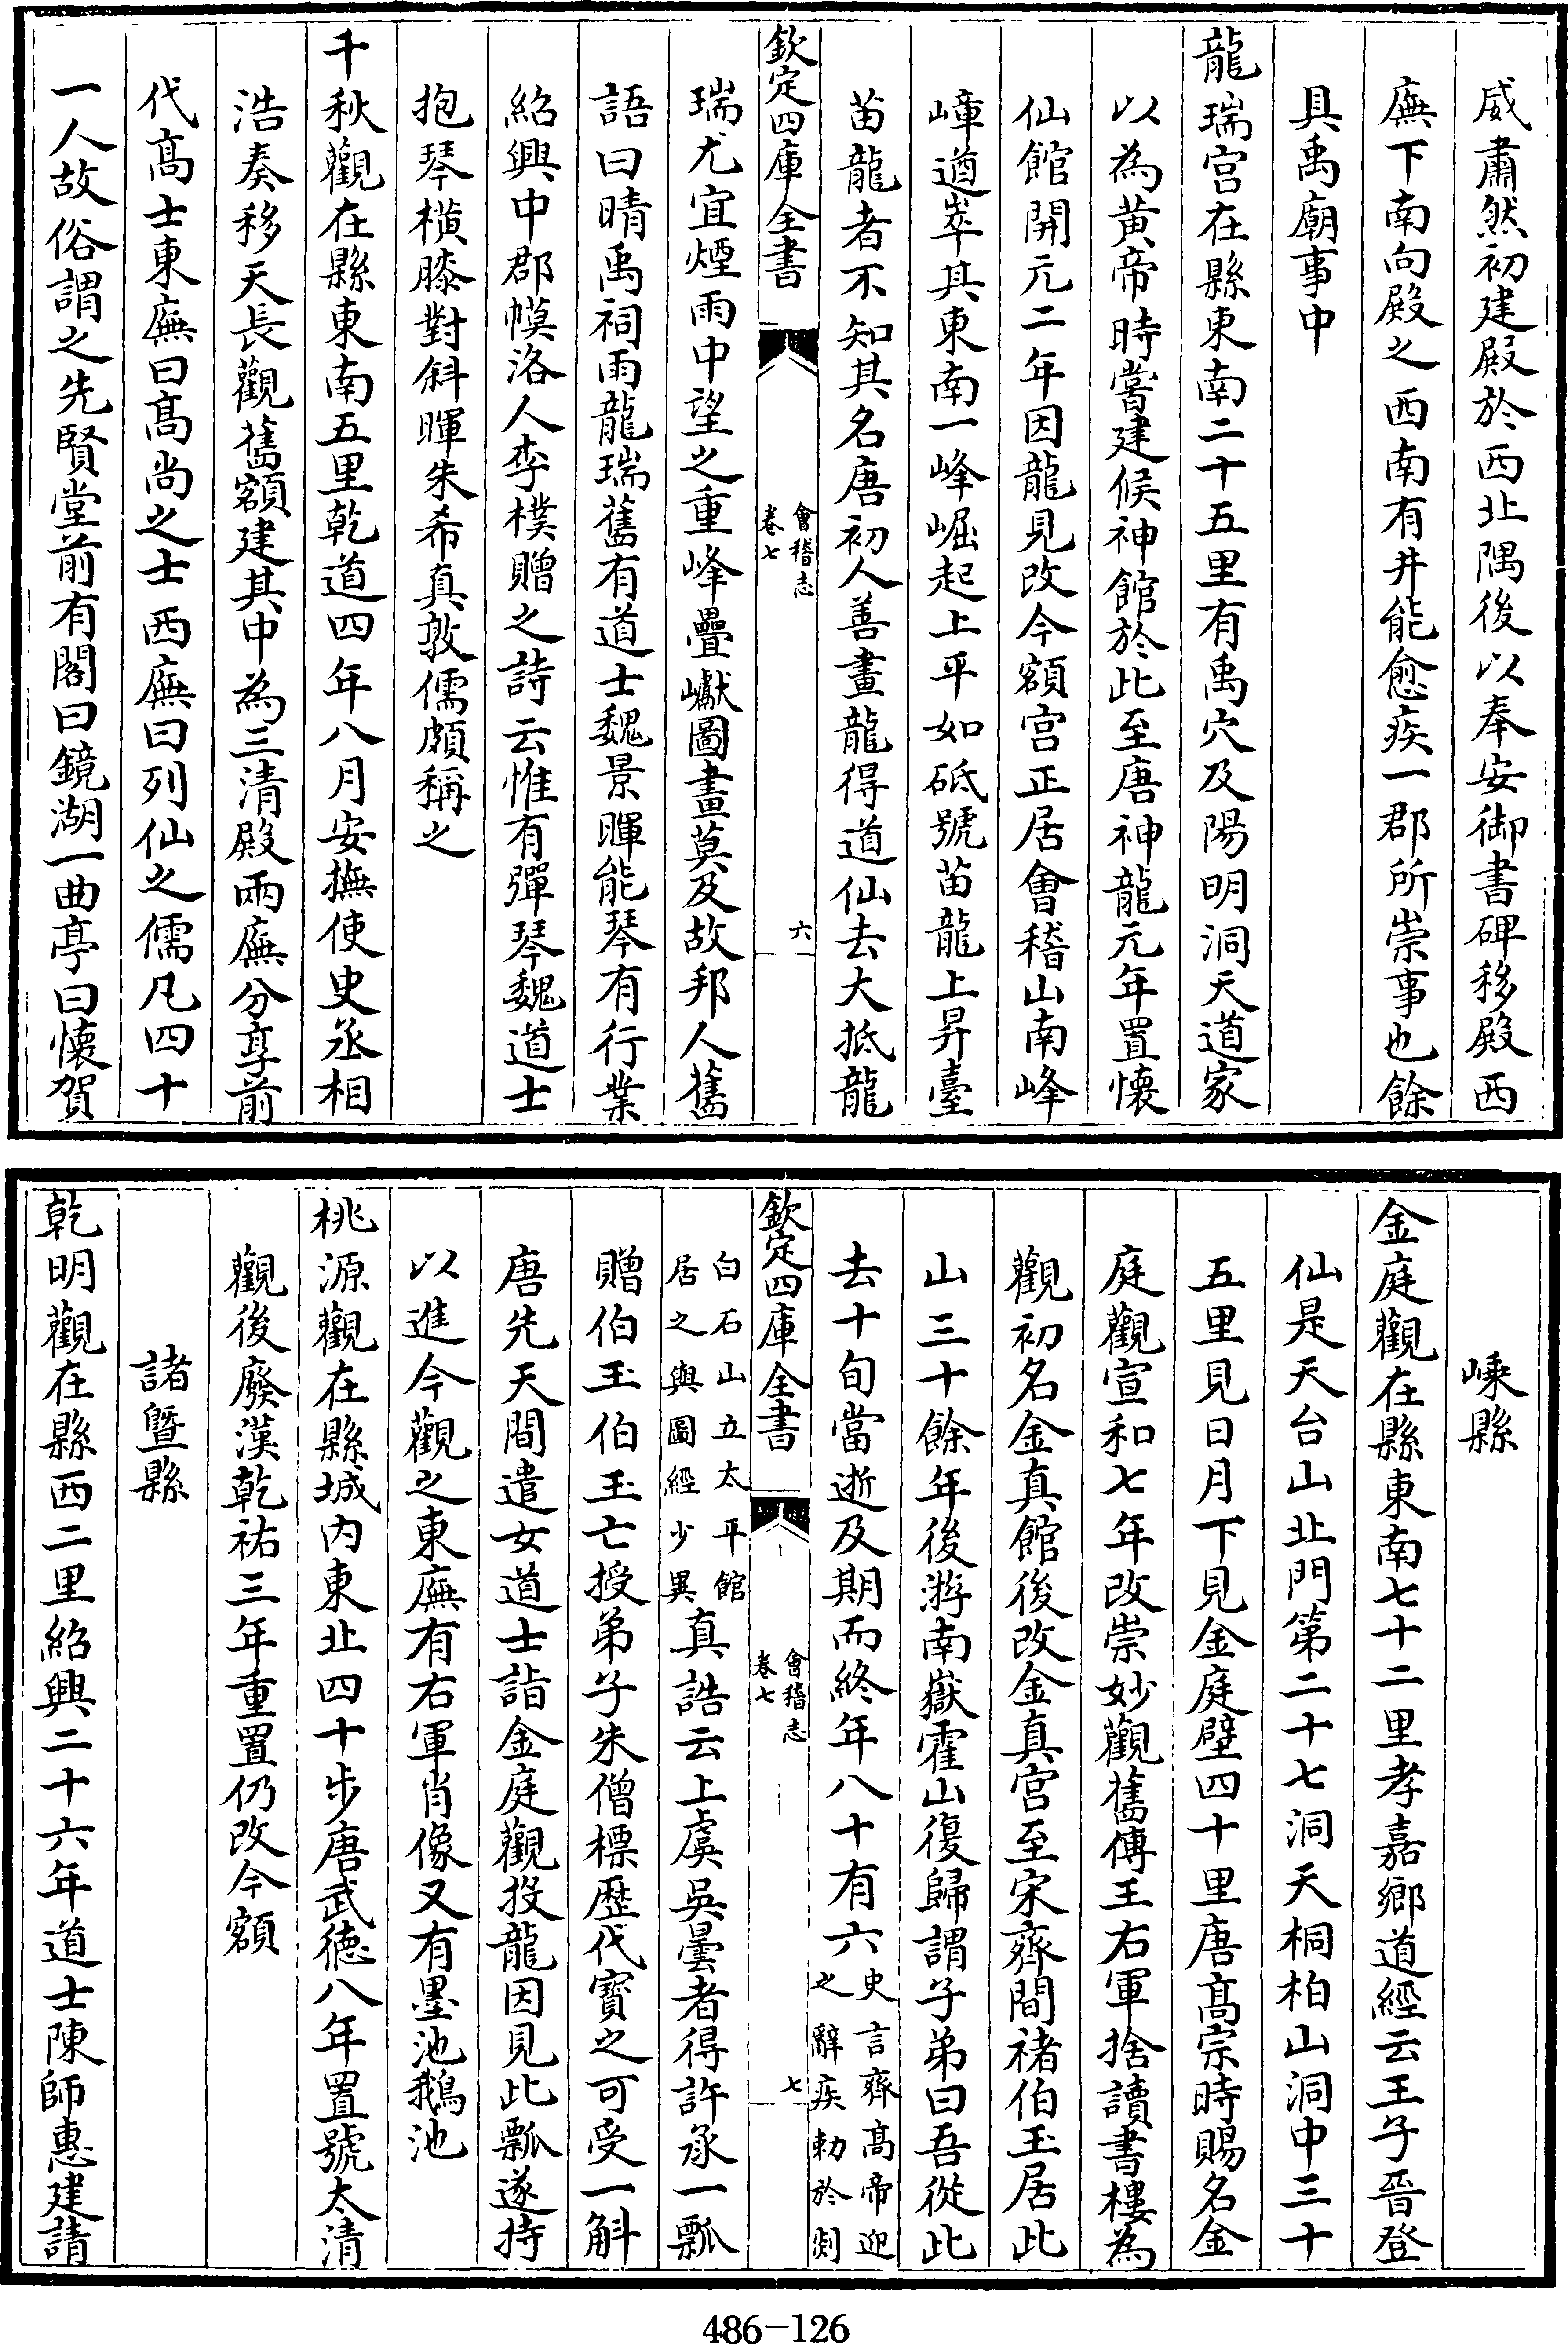 威肅然初建殿於西北隅後以奉安御書碑移殿西
廡下南向殿之西南有井能愈疾一郡所崇事也餘
具禹廟事中
龍瑞宫在縣東南二十五里有禹穴及陽明洞天道家
以為黄帝時嘗建候神館於此至唐神龍元年置懷
仙館開元二年因龍見改今額宫正居會稽山南峰
嶂遒崒其東南一峰崛起上平如砥號苗龍上昇臺
苗龍者不知其名唐初人善畫龍得道仙去大抵龍
欽定四庫全書
會稽志
卷七
六
瑞尤宜煙雨中望之重峰疊巘圖畫莫及故邦人舊
語曰晴禹祠雨龍瑞舊有道士魏景暉能琴有行業
紹興中郡幙洛人李樸贈之詩云惟有彈琴魏道士
抱琴横膝對斜暉朱希真敦儒頗稱之
千秋觀在縣東南五里乾道四年八月安撫使史丞相
浩奏移天長觀舊額建其中為三清殿兩廡分享前
代髙士東廡曰髙尚之士西廡曰列仙之儒凡四十
一人故俗謂之先賢堂前有閣曰鏡湖一曲亭曰懷賀
嵊縣
金庭觀在縣東南七十二里孝嘉鄉道經云王子晉登
仙是天台山北門第二十七洞天桐柏山洞中三十
五里見日月下見金庭壁四十里唐髙宗時賜名金
庭觀宣和七年改崇妙觀舊傳王右軍捨讀書樓為
觀初名金真館後改金真宫至宋齊間禇伯玉居此
山三十餘年後游南嶽霍山復歸謂子弟曰吾從此
去十旬當逝及期而終年八十有六史言齊髙帝迎
之辭疾勅於剡
欽定四庫全書
會稽志
卷七
七
白石山立太平館
居之與圖經少異真誥云上虞吳曇者得許承一瓢
贈伯玉伯玉亡授弟子朱僧標歴代寳之可受一斛
唐先天間遣女道士詣金庭觀投龍因見此瓢遂持
以進今觀之東廡有右軍肖像又有墨池鵝池
桃源觀在縣城内東北四十步唐武徳八年置號太清
觀後廢漢乾祐三年重置仍改今額
諸暨縣
乾明觀在縣西二里紹興二十六年道士陳師惠建請
486-126